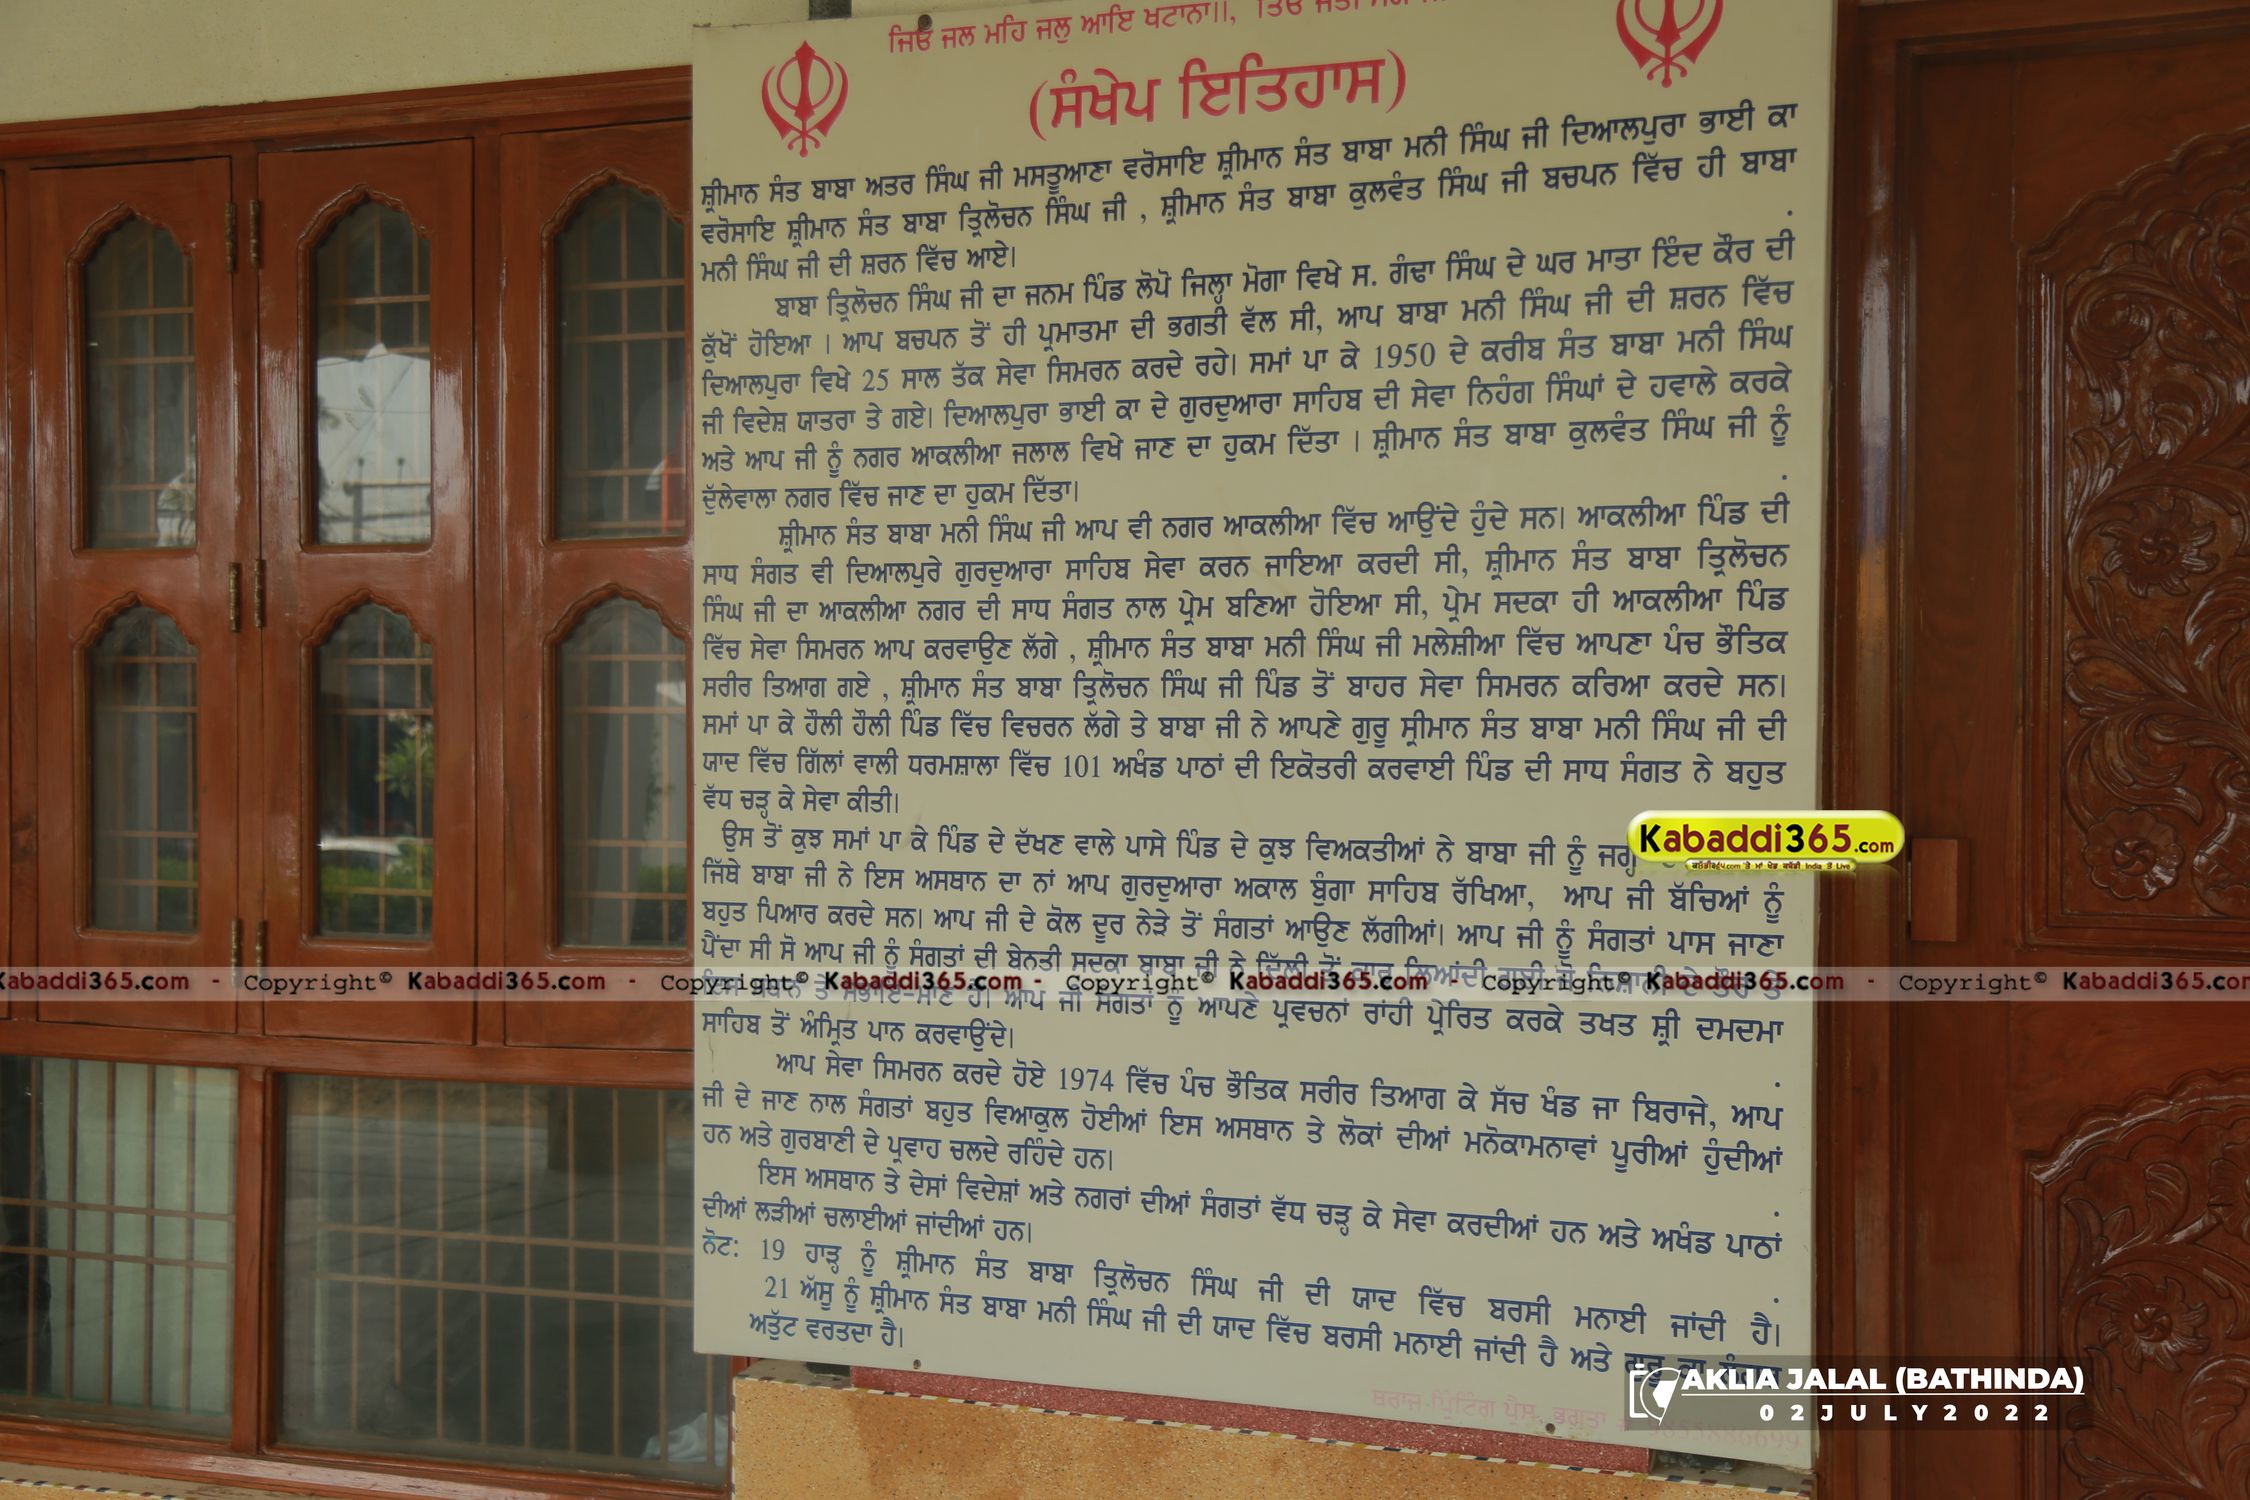 ਜਿਓ ਜਲ ਮਹਿ ਜਲੁ ਆਇ ਖਟਾਨਾ॥, ਤਿਓ
(ਸੰਖੇਪ ਇਤਿਹਾਸ)
ਸ਼੍ਰੀਮਾਨ ਸੰਤ ਬਾਬਾ ਅਤਰ ਸਿੰਘ ਜੀ ਮਸਤੂਆਣਾ ਵਰੋਸਾਇ ਸ਼੍ਰੀਮਾਨ ਸੰਤ ਬਾਬਾ ਮਨੀ ਸਿੰਘ ਜੀ ਦਿਆਲਪੁਰਾ ਭਾਈ ਕਾ
ਵਰੋਸਾਇ ਸ਼੍ਰੀਮਾਨ ਸੰਤ ਬਾਬਾ ਤ੍ਰਿਲੋਚਨ ਸਿੰਘ ਜੀ , ਸ਼੍ਰੀਮਾਨ ਸੰਤ ਬਾਬਾ ਕੁਲਵੰਤ ਸਿੰਘ ਜੀ ਬਚਪਨ ਵਿੱਚ ਹੀ ਬਾਬਾ
ਮਨੀ ਸਿੰਘ ਜੀ ਦੀ ਸ਼ਰਨ ਵਿੱਚ ਆਏ।
ਬਾਬਾ ਤ੍ਰਿਲੋਚਨ ਸਿੰਘ ਜੀ ਦਾ ਜਨਮ ਪਿੰਡ ਲੋਪੋ ਜਿਲ੍ਹਾ ਮੋਗਾ ਵਿਖੇ ਸ. ਗੰਢਾ ਸਿੰਘ ਦੇ ਘਰ ਮਾਤਾ ਇੰਦ ਕੌਰ ਦੀ
ਕੁੱਖੋਂ ਹੋਇਆ । ਆਪ ਬਚਪਨ ਤੋਂ ਹੀ ਪ੍ਰਮਾਤਮਾ ਦੀ ਭਗਤੀ ਵੱਲ ਸੀ, ਆਪ ਬਾਬਾ ਮਨੀ ਸਿੰਘ ਜੀ ਦੀ ਸ਼ਰਨ ਵਿੱਚ
ਦਿਆਲਪੁਰਾ ਵਿਖੇ 25 ਸਾਲ ਤੱਕ ਸੇਵਾ ਸਿਮਰਨ ਕਰਦੇ ਰਹੇ। ਸਮਾਂ ਪਾ ਕੇ 1950 ਦੇ ਕਰੀਬ ਸੰਤ ਬਾਬਾ ਮਨੀ ਸਿੰਘ
ਜੀ ਵਿਦੇਸ਼ ਯਾਤਰਾ ਤੇ ਗਏ। ਦਿਆਲਪੁਰਾ ਭਾਈ ਕਾ ਦੇ ਗੁਰਦੁਆਰਾ ਸਾਹਿਬ ਦੀ ਸੇਵਾ ਨਿਹੰਗ ਸਿੰਘਾਂ ਦੇ ਹਵਾਲੇ ਕਰਕੇ
ਅਤੇ ਆਪ ਜੀ ਨੂੰ ਨਗਰ ਆਕਲੀਆ ਜਲਾਲ ਵਿਖੇ ਜਾਣ ਦਾ ਹੁਕਮ ਦਿੱਤਾ । ਸ਼੍ਰੀਮਾਨ ਸੰਤ ਬਾਬਾ ਕੁਲਵੰਤ ਸਿੰਘ ਜੀ ਨੂੰ
ਦੁੱਲੇਵਾਲਾ ਨਗਰ ਵਿੱਚ ਜਾਣ ਦਾ ਹੁਕਮ ਦਿੱਤਾ।
ਸ਼੍ਰੀਮਾਨ ਸੰਤ ਬਾਬਾ ਮਨੀ ਸਿੰਘ ਜੀ ਆਪ ਵੀ ਨਗਰ ਆਕਲੀਆ ਵਿੱਚ ਆਉਂਦੇ ਹੁੰਦੇ ਸਨ। ਆਕਲੀਆ ਪਿੰਡ ਦੀ
ਸਾਧ ਸੰਗਤ ਵੀ ਦਿਆਲਪੁਰੇ ਗੁਰਦੁਆਰਾ ਸਾਹਿਬ ਸੇਵਾ ਕਰਨ ਜਾਇਆ ਕਰਦੀ ਸੀ, ਸ਼੍ਰੀਮਾਨ ਸੰਤ ਬਾਬਾ ਤ੍ਰਿਲੋਚਨ
ਸਿੰਘ ਜੀ ਦਾ ਆਕਲੀਆ ਨਗਰ ਦੀ ਸਾਧ ਸੰਗਤ ਨਾਲ ਪ੍ਰੇਮ ਬਣਿਆ ਹੋਇਆ ਸੀ, ਪ੍ਰੇਮ ਸਦਕਾ ਹੀ ਆਕਲੀਆ ਪਿੰਡ
ਵਿੱਚ ਸੇਵਾ ਸਿਮਰਨ ਆਪ ਕਰਵਾਉਣ ਲੱਗੇ , ਸ਼੍ਰੀਮਾਨ ਸੰਤ ਬਾਬਾ ਮਨੀ ਸਿੰਘ ਜੀ ਮਲੇਸ਼ੀਆ ਵਿੱਚ ਆਪਣਾ ਪੰਚ ਭੌਤਿਕ
ਸਰੀਰ ਤਿਆਗ ਗਏ , ਸ਼੍ਰੀਮਾਨ ਸੰਤ ਬਾਬਾ ਤ੍ਰਿਲੋਚਨ ਸਿੰਘ ਜੀ ਪਿੰਡ ਤੋਂ ਬਾਹਰ ਸੇਵਾ ਸਿਮਰਨ ਕਰਿਆ ਕਰਦੇ ਸਨ।
ਸਮਾਂ ਪਾ ਕੇ ਹੌਲੀ ਹੌਲੀ ਪਿੰਡ ਵਿੱਚ ਵਿਚਰਨ ਲੱਗੇ ਤੇ ਬਾਬਾ ਜੀ ਨੇ ਆਪਣੇ ਗੁਰੂ ਸ੍ਰੀਮਾਨ ਸੰਤ ਬਾਬਾ ਮਨੀ ਸਿੰਘ ਜੀ ਦੀ
ਯਾਦ ਵਿੱਚ ਗਿੱਲਾਂ ਵਾਲੀ ਧਰਮਸ਼ਾਲਾ ਵਿੱਚ 101 ਅਖੰਡ ਪਾਠਾਂ ਦੀ ਇਕੋਤਰੀ ਕਰਵਾਈ ਪਿੰਡ ਦੀ ਸਾਧ ਸੰਗਤ ਨੇ ਬਹੁਤ
ਵੱਧ ਚੜ੍ਹ ਕੇ ਸੇਵਾ ਕੀਤੀ।
ਉਸ ਤੋਂ ਕੁਝ ਸਮਾਂ ਪਾ ਕੇ ਪਿੰਡ ਦੇ ਦੱਖਣ ਵਾਲੇ ਪਾਸੇ ਪਿੰਡ ਦੇ ਕੁਝ ਵਿਅਕਤੀਆਂ ਨੇ ਬਾਬਾ ਜੀ ਨੂੰ
ਜਿੱਥੇ ਬਾਬਾ ਜੀ ਨੇ ਇਸ ਅਸਥਾਨ ਦਾ ਨਾਂ ਆਪ ਗੁਰਦੁਆਰਾ ਅਕਾਲ ਬੁੰਗਾ ਸਾਹਿਬ ਰੱਖਿਆ, ਆਪ ਜੀ ਬੱਚਿਆਂ ਨੂੰ
ਬਹੁਤ ਪਿਆਰ ਕਰਦੇ ਸਨ। ਆਪ ਜੀ ਦੇ ਕੋਲ ਦੂਰ ਨੇੜੇ ਤੋਂ ਸੰਗਤਾਂ ਆਉਣ ਲੱਗੀਆਂ। ਆਪ ਜੀ ਨੂੰ ਸੰਗਤਾਂ ਪਾਸ ਜਾਣਾ
ਪੈਂਦਾ ਸੀ ਸੋ ਆਪ ਜੀ ਨੂੰ ਸੰਗਤਾਂ ਦੀ ਬੇਨਤੀ ਸਦਕਾ ਬਾਬਾ ਜੀ ਨੇ ਦਿੱਲੀ ਤੋਂ ਕਾਰ ਲਿਆਂਦੀ
ਆਪ ਜੀ ਸੰਗਤਾਂ ਨੂੰ ਆਪਣੇ ਪ੍ਰਵਚਨਾਂ ਰਾਂਹੀ ਪ੍ਰੇਰਿਤ ਕਰਕੇ ਤਖਤ ਸ਼੍ਰੀ ਦਮਦਮਾ
ਸਾਹਿਬ ਤੋਂ ਅੰਮ੍ਰਿਤ ਪਾਨ ਕਰਵਾਉਂਦੇ।
ਆਪ ਸੇਵਾ ਸਿਮਰਨ ਕਰਦੇ ਹੋਏ 1974 ਵਿੱਚ ਪੰਚ ਭੌਤਿਕ ਸਰੀਰ ਤਿਆਗ ਕੇ ਸੱਚ ਖੰਡ ਜਾ ਬਿਰਾਜੇ, ਆਪ
ਜੀ ਦੇ ਜਾਣ ਨਾਲ ਸੰਗਤਾਂ ਬਹੁਤ ਵਿਆਕੁਲ ਹੋਈਆਂ ਇਸ ਅਸਥਾਨ ਤੇ ਲੋਕਾਂ ਦੀਆਂ ਮਨੋਕਾਮਨਾਵਾਂ ਪੂਰੀਆਂ ਹੁੰਦੀਆਂ
ਹਨ ਅਤੇ ਗੁਰਬਾਣੀ ਦੇ ਪ੍ਰਵਾਹ ਚਲਦੇ ਰਹਿੰਦੇ ਹਨ।
ਇਸ ਅਸਥਾਨ ਤੇ ਦੇਸਾਂ ਵਿਦੇਸ਼ਾਂ ਅਤੇ ਨਗਰਾਂ ਦੀਆਂ ਸੰਗਤਾਂ ਵੱਧ ਚੜ੍ਹ ਕੇ ਸੇਵਾ ਕਰਦੀਆਂ ਹਨ ਅਤੇ ਅਖੰਡ ਪਾਠਾਂ
ਦੀਆਂ ਲੜੀਆਂ ਚਲਾਈਆਂ ਜਾਂਦੀਆਂ ਹਨ।
ਨੋਟ: 19 ਹਾੜ੍ਹ ਨੂੰ ਸ਼੍ਰੀਮਾਨ ਸੰਤ ਬਾਬਾ ਤ੍ਰਿਲੋਚਨ ਸਿੰਘ ਜੀ ਦੀ ਯਾਦ ਵਿੱਚ ਬਰਸੀ ਮਨਾਈ ਜਾਂਦੀ ਹੈ।
21 ਅੱਸੂ ਨੂੰ ਸ਼੍ਰੀਮਾਨ ਸੰਤ ਬਾਬਾ ਮਨੀ ਸਿੰਘ ਜੀ ਦੀ ਯਾਦ ਵਿੱਚ ਬਰਸੀ ਮਨਾਈ ਜਾਂਦੀ ਹੈ ਅਤੇ ਗੁਰੂ ਕਾ
ਅਤੁੱਟ ਵਰਤਦਾ ਹੈ।
ਪ੍ਰਿੰਟਿੰਗ ਪ੍ਰੈਸ, ਭਗਤਾ
Kabaddi365.com
Kabaddi365.com - Copyright© Kabaddi365.com - Copyright© Kabaddi365.com - Copyright© Kabaddi365.com - Copyright© Kabaddi365.com - Copyright© Kabaddi365.com
AKLIA JALAL (BATHINDA)
02JULY2022